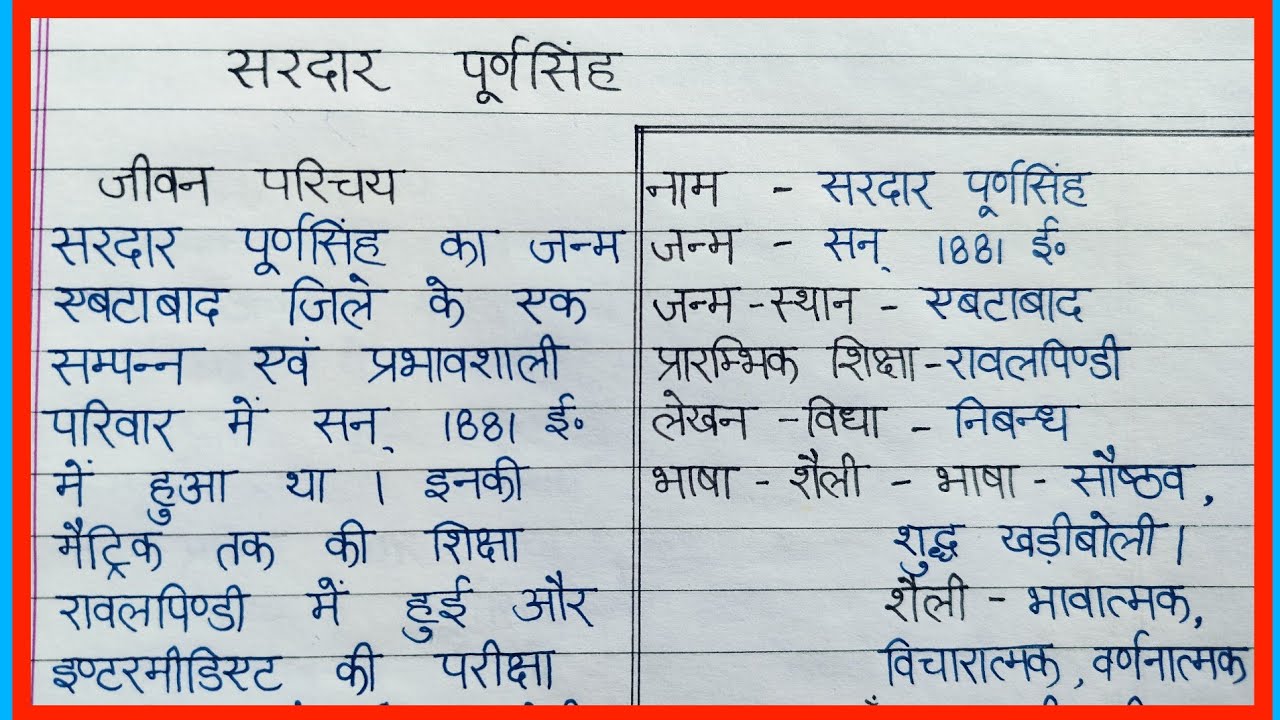 सरदार पूर्णसिंह
जीवन परिचय
सरदार पूर्णसिंह का जन्म
एबटाबाद जिले के एक
सम्पन्न एवं प्रभावशाली
परिवार में सन् 1881 ई॰
में हुआ था । इनकी
मैट्रिक तक की शिक्षा
रावलपिण्डी में हुई और
इण्टरमीडिएट की परीक्षा
नाम - सरदार पूर्णसिंह
जन्म - सन् 1881 ई॰
जन्म - स्थान - एबटाबाद
प्रारम्भिक शिक्षा - रावलपिण्डी
लेखन - विधा - निबन्ध
भाषा - शैली - भाषा - सौष्ठव ,
शुद्ध खड़ीबोली ।
शैली - भावात्मक,
विचारात्मक , वर्णनात्मक